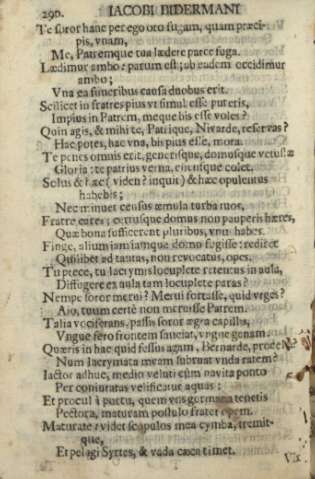 290. IACOBI BIDERMANI
Te soror hanc per ego oro fugam, quam præci-
pis, vnam,
Me, Patremque tua lædere parce fuga.
Lædimur ambo: parum est; ab eadem occidimur
ambo;
Vna ea funeribus causa duobus erit.
Scilicet in fratres pius vt simul esse puteris,
Impius in Patrem, meque bis esse voles?
Quin agis, & mihi te, Patrique, Nivarde, reservas?
Hac potes, hac vna, bis pius esse, mora.
Te penes omnis erit, generisque, domusque vetustæ
Gloria: te patrius verna, cliensque colet.
Solus & hæc (viden? inquit) & hæc opulentus
habebis;
Nec minuet census æmula turba tuos,
Fratre cares; certusque domus non pauperis hæres,
Quæ bona sufficerent pluribus, vnus habes.
Finge, alium iam iamque domo fugisse: redibit
Quilibet ad tantas, non revocatus, opes.
Tu prece, tu lacrymis locuplete retentus in aula,
Diffugere ex aula tam locuplete paras?
Nempe soror merui? Merui fortasse, quid vrges?
Aio, tuum certè non meruisse Patrem.
Talia vociferans, passis soror ægra capillis,
Vngue fero frontem sauciat, vngue genam.
Quæris in hac quid fessus agam, Bernarde,
Num lacrymata meam subruat vnda ratem?
Iactor adhuc, medio veluti cum navita ponto
Per coniuratas velificatur aquas:
Et procul à portu, quem vos germana tenetis
Pectora, maturam postulo frater opem.
Maturate: videt scapulos mea cymba, tremit-
que,
Et pelagi Syrtes, & vada cæca timet.